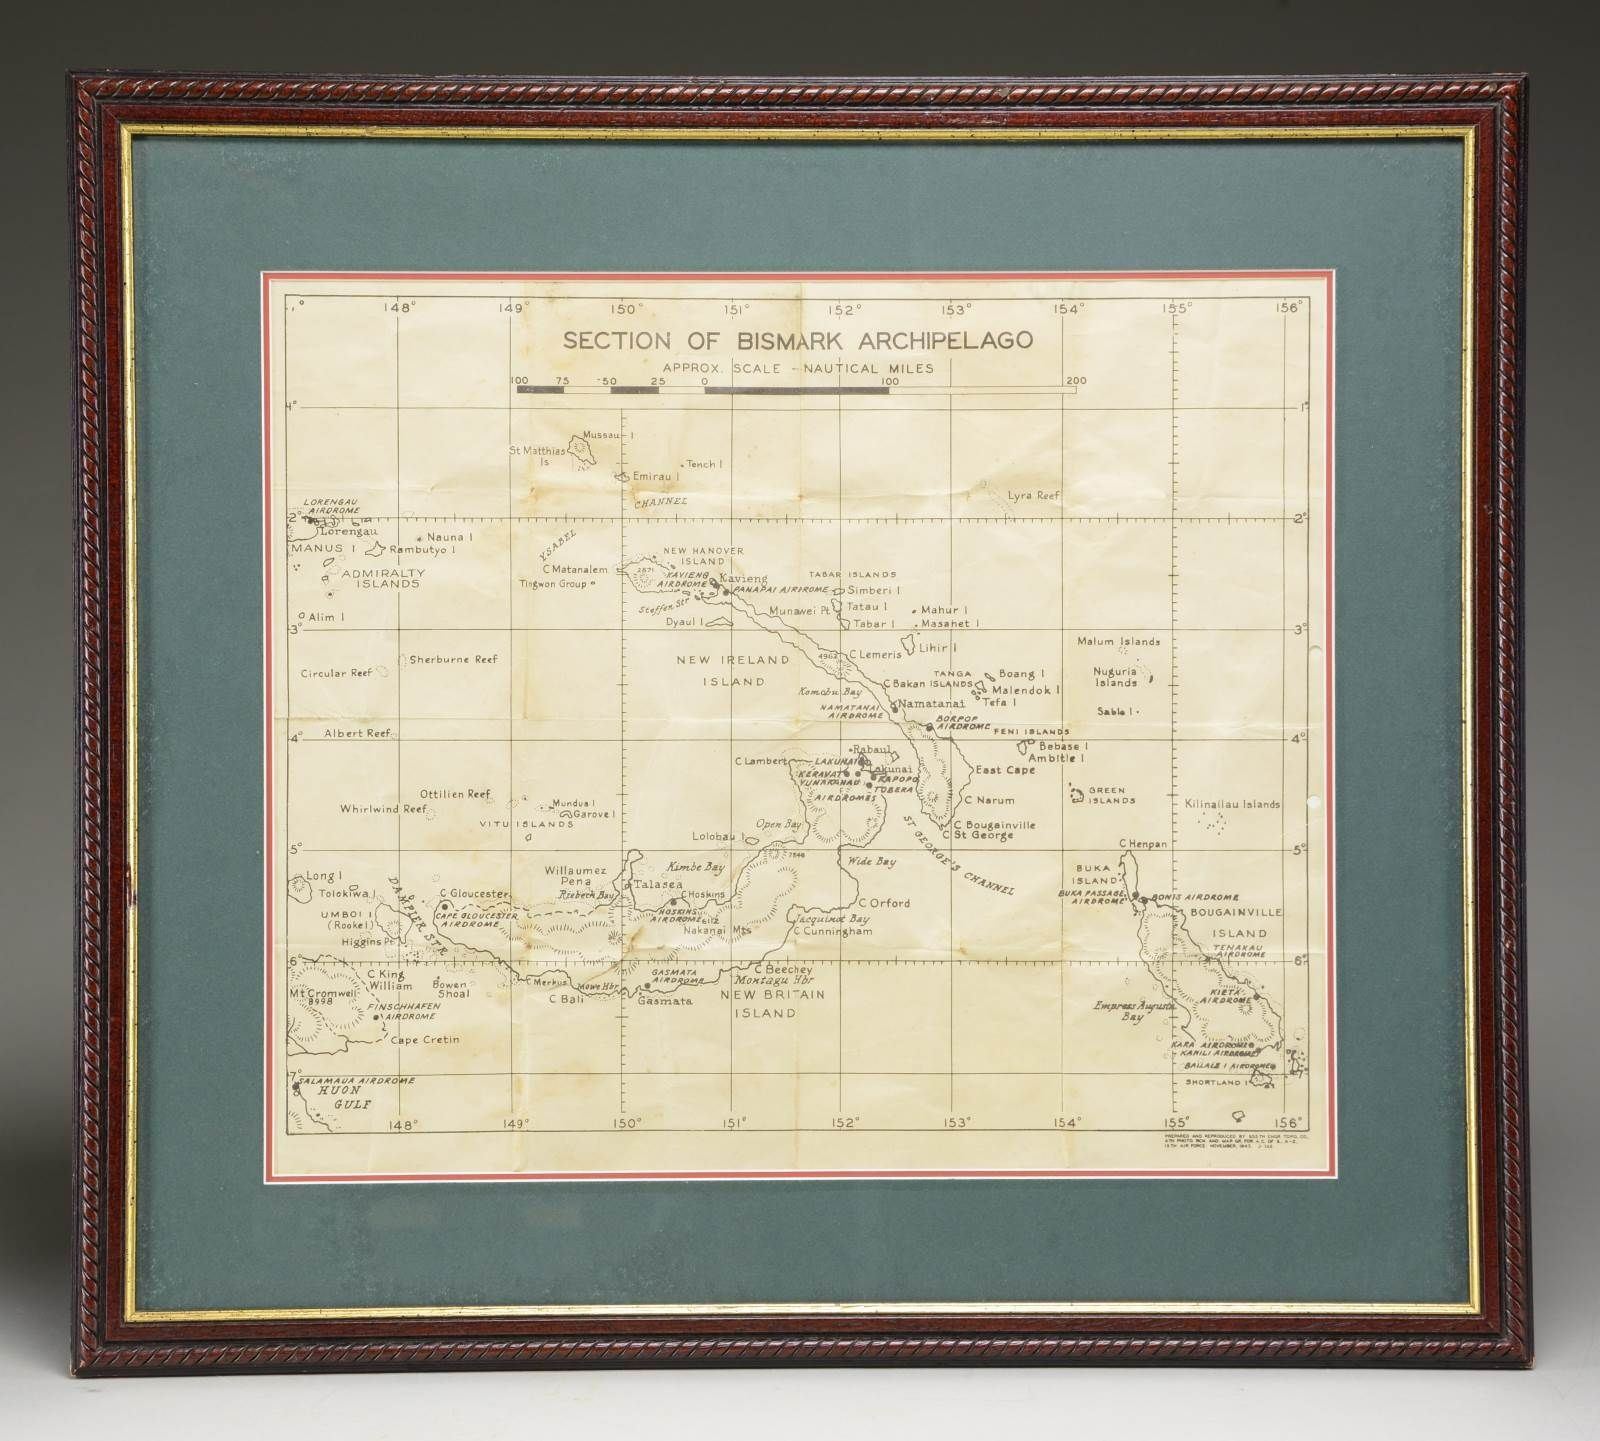 148° 149° 150° 151° 152° 153° 154° 155° 156°
SECTION OF BISMARK ARCHIPELAGO
APPROX. SCALE - NAUTICAL MILES
100 75 50 25 0 100 200
Mussau I
St Matthias
Is
Emirau I
Tench I
CHANNEL
YSABEL
Lyra Reef
LORENGAU
AIRDROME
2° 2°
Lorengau
MANUS I
Rambutyo I
Nauna I
ADMIRALTY
ISLANDS
Alim I
NEW HANOVER
ISLAND
C Matanalem
2871
Tingwon Group
KAVIENG
AIRDROME
Kavieng
PANAPAI AIRDROME
Steffen Str
Dyaul I
TABAR ISLANDS
Simberi I
Munawei Pt
Tatau I
Tabar I
Mahur I
Masahet I
3° 3°
Lihir I
Malum Islands
Circular Reef
Sherburne Reef
NEW IRELAND
ISLAND
C Lemeris
Komabu Bay
C Bakan
TANGA
ISLANDS
Boang I
Malendok I
Tefa I
Nuguria
Islands
Sable I
NAMATANAI
AIRDROME
Namatanai
BORPOP
AIRDROME
FENI ISLANDS
Bebase I
Ambitle I
Albert Reef
4° 4°
C Lambert
Rabaul
LAKUNAI
Lakunai
KERAVAT
VUNAKANAU
RAPOPO
TOBERA
AIRDROMES
East Cape
Ottilien Reef
Whirlwind Reef
Mundua I
Garove I
VITU ISLANDS
C Narum
GREEN
ISLANDS
Kilinailau Islands
Open Bay
Lolobau I
C Bougainville
C St George
ST GEORGE'S CHANNEL
5° 5°
C Henpan
Wide Bay
Long I
Tolokiwa I
DAMPIER STR
C Gloucester
Willaumez
Pena
Kimbe Bay
Talasea
Riebeck Bay
C Hoskins
BUKA
ISLAND
BUKA PASSAGE
AIRDROME
BONIS AIRDROME
UMBOI I
(Rooke I)
CAPE GLOUCESTER
AIRDROME
HOSKINS
AIRDROME
Nakanai Mts
C Orford
Jacquinot Bay
C Cunningham
BOUGAINVILLE
ISLAND
Higgins Pt
TENAKAU
AIRDROME
6° 6°
C King
William
Bowen
Shoal
C Merkus
Mowe Hbr
C Bali
GASMATA
AIRDROME
Gasmata
C Beechey
Montagu Hbr
NEW BRITAIN
ISLAND
Mt Cromwell
8998
FINSCHHAFEN
AIRDROME
Cape Cretin
KIETA
AIRDROME
Empress Augusta
Bay
KARA AIRDROME
KAHILI AIRDROME
BALLALE I AIRDROME
SHORTLAND I
7° 7°
SALAMAUA AIRDROME
HUON
GULF
148° 149° 150° 151° 152° 153° 154° 155° 156°